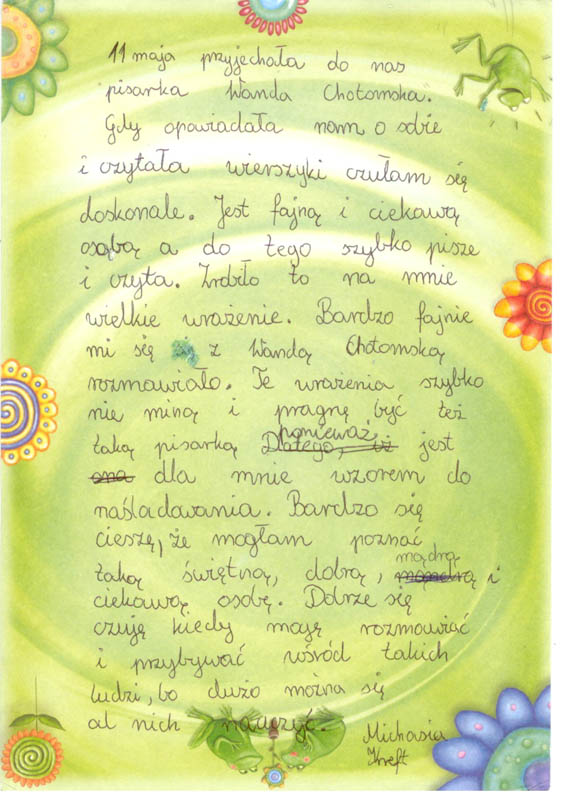 11 maja przyjechała do nas
pisarka Wanda Chotomska.
Gdy opowiadała nam o sobie
i czytała wierszyki czułam się
doskonale. Jest fajną i ciekawą
osobą a do tego szybko pisze
i czyta. Zrobiło to na mnie
wielkie wrażenie. Bardzo fajnie
mi się z Wandą Chotomską
rozmawiało. Te wrażenia szybko
nie miną i pragnę być też
taką pisarką ponieważ jest
dla mnie wzorem do
naśladawania. Bardzo się
cieszę, że mogłam poznać
taką świętną, dobrą, mądrą i
ciekawą osobę. Dobrze się
czuję kiedy mogę rozmawiać
i przybywać wśród takich
ludzi, bo dużo można się
od nich nauczyć.
Michasia
Kreft